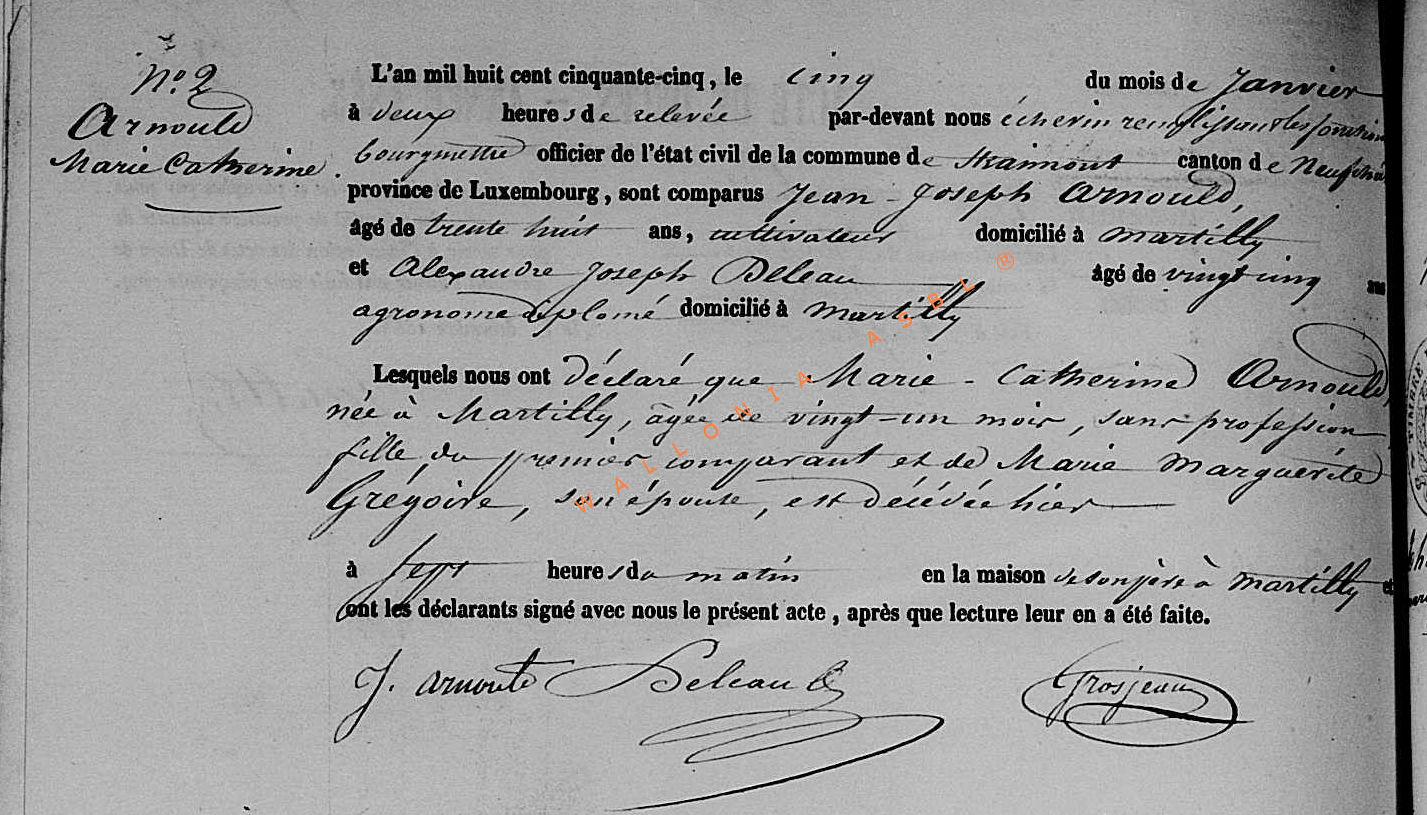 No. 2
Arnould
Marie Catherine.
L'an mil huit cent cinquante-cinq, le cinq du mois de Janvier
à deux heures de relevée par-devant nous échevin remplissant les fonctions
bourgmestre officier de l'état civil de la commune de Straimont canton de Neufchâ
province de Luxembourg, sont comparus Jean-Joseph Arnould,
âgé de trente huit ans, cultivateur domicilié à Martilly
et Alexandre Joseph Deleau âgé de vingt cinq ans
agronome diplomé domicilié à Martilly
Lesquels nous ont déclaré que Marie-Catherine Arnould,
née à Martilly, âgée de vingt-un mois, sans profession
fille du premier comparant et de Marie Marguerite
Grégoire, son épouse, est décédée hier
à sept heures du matin en la maison de son père à Martilly et
ont les déclarants signé avec nous le présent acte, après que lecture leur en a été faite.
J. Arnould Deleau Grosjean
WALLONIA ASBL ®